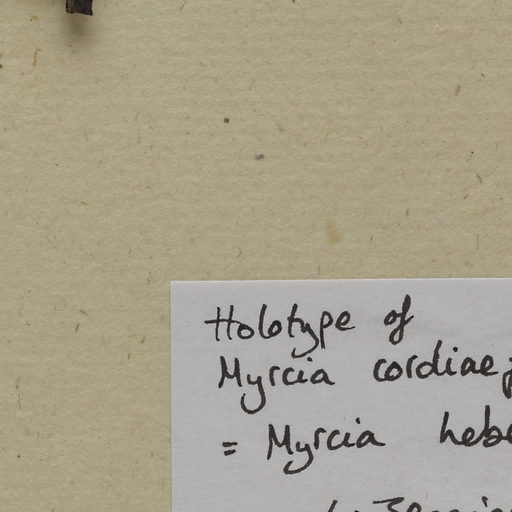 Holotype of
Myrcia cordiae
= Myrcia hebe